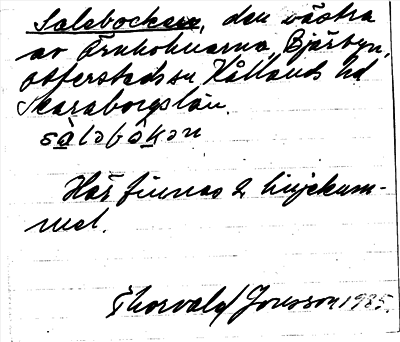 Salsbocken, den västra
av Örnholmarna, Bjärbyn,
Otterstads sn Kållands hd
Skaraborgs län.
sàləbòkən
Här finnas 2 linjekum-
mel.
Thorvald Jonsson 1985.